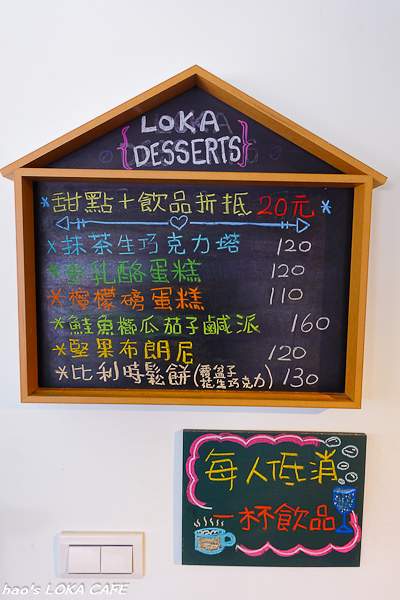 LOKA
{DESSERTS}
*甜點+飲品折抵20元*
*抹茶生巧克力塔 120
*重乳酪蛋糕 120
*檸檬磅蛋糕 110
*鮭魚櫛瓜茄子鹹派 160
*堅果布朗尼 120
*比利時鬆餅(覆盆子 花生巧克力) 130
每人低消
一杯飲品
hao's LOKA CAFE